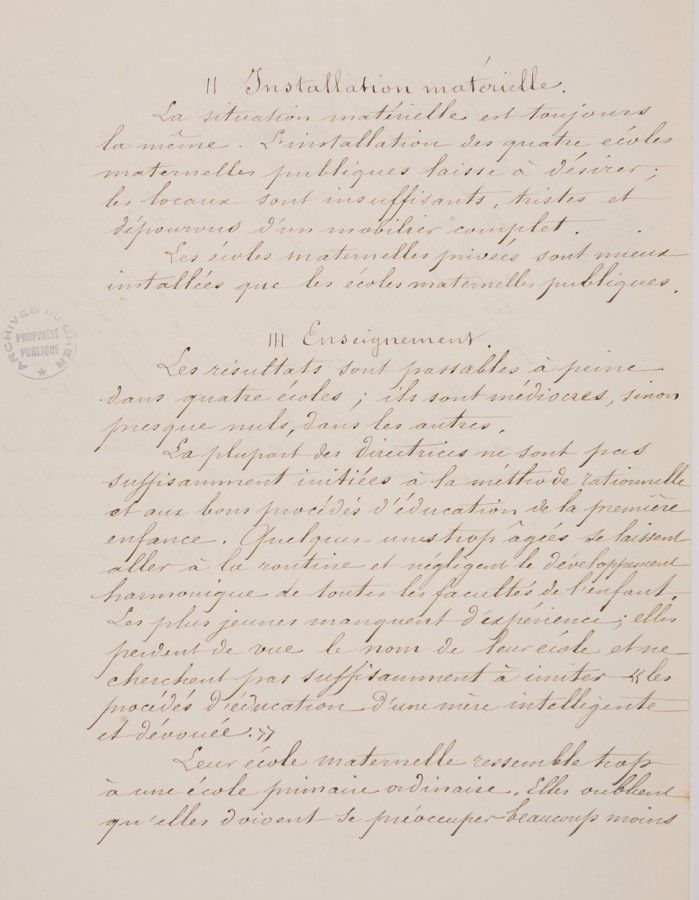 II Installation matérielle.
La situation matérielle est toujours
la même. L'installation des quatre écoles
maternelles publiques laisse à désirer ;
les locaux sont insuffisants, tristes et
dépourvus d'un mobilier complet.
Les écoles maternelles privées sont mieux
installées que les écoles maternelles publiques.
III Enseignement.
Les résultats sont passables à peine
dans quatre écoles ; ils sont médiocres, sinon
presque nuls, dans les autres.
La plupart des directrices ne sont pas
suffisamment initiées à la méthode rationnelle
et aux bons procédés d'éducation de la première
enfance. Quelques-unes trop âgées se laissent
aller à la routine et négligent le développement
harmonique de toutes les facultés de l'enfant.
Les plus jeunes manquent d'expérience ; elles
perdent de vue le nom de leur école et ne
cherchent pas suffisamment à imiter « les
procédés d'éducation d'une mère intelligente
et dévouée. »
Leur école maternelle ressemble trop
à une école primaire ordinaire. Elles oublient
qu'elles doivent se préoccuper beaucoup moins
ARCHIVES DU CHER
PROPRIÉTÉ
PUBLIQUE